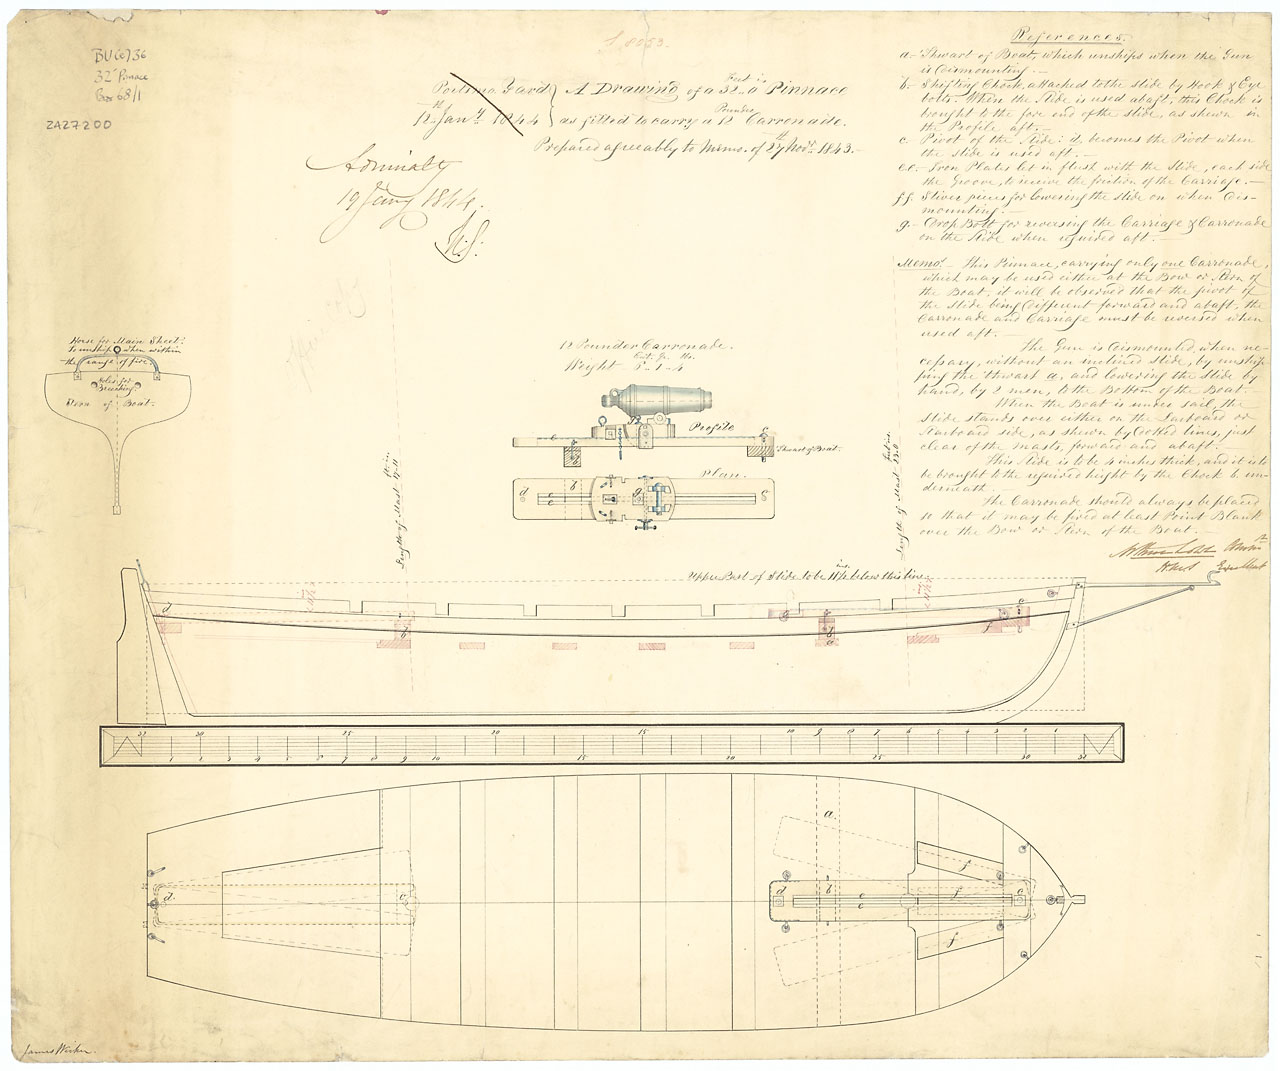 BU(e)36
32' Pinnace
Box 68/1
ZAZ7200
Portsmo. Yard
12th Jany. 1844
A Drawing of a 32 Feet 0 in Pinnace
as fitted to carry a 12 Pounder Carronade.
Prepared agreeably to Memo. of 27th Novr. 1843.
Admiralty
19 Jany 1844.
References.
a. Thwart of Boat, which unships when the Gun
is Dismounting.
b. Shifting Chock, attached to the slide by Hook & Eye
bolts. When the Slide is used abaft, this Chock is
brought to the fore end of the slide, as shewn in
the Profile aft.
c Pivot of the Slide: d becomes the Pivot when
the slide is used aft.
ee. Iron Plates let in flush with the Slide, each side
the Groove, to receive the friction of the Carriage.
ff. pieces for lowering the slide on when Dis-
mounting.
g. Drop Bolt for reversing the Carriage & Carronade
on the Slide when required aft.
Memo. This Pinnace, carrying only one Carronade,
which may be used either at the Bow or Stern of
the Boat, it will be observed that the pivot of
the Slide being different forward and abaft, the
Carronade and Carriage must be reversed when
used aft.
The Gun is dismounted when ne-
cessary, without an inclined slide, by unship-
ping the thwart a, and lowering the Slide by
hand, by 2 men, to the Bottom of the Boat.
When the Boat is under sail, the
Slide stands over either on the Larboard or
Starboard side, as shewn by dotted lines, just
clear of the masts, forward and abaft.
This Slide is to be 4 inches thick, and it is to
be brought to the required height by the Chock b un-
derneath.
The Carronade should always be placed
so that it may be fired at least Point Blank
over the Bow or Stern of the Boat.
Horse for Main Sheet:
to unship when within
the range of fire.
Holes for
Breeching
Stern of Boat.
12 Pounder Carronade.
Cwt. Qr. lbs.
Weight 5 - 1 - 4
Profile
Thwart of Boat.
Plan.
d b e e g c
Length of Mast
Length of Mast
Upper Part of Slide to be 11½ ins. below this line
d b a b f c
32 30 20 15 10 9 8 7 6 5 4 3 2 1
1 2 3 4 5 6 7 8 9 10 15 20 25 30 32
a.
f
d b e e f c
f
d. c
James Wicker.